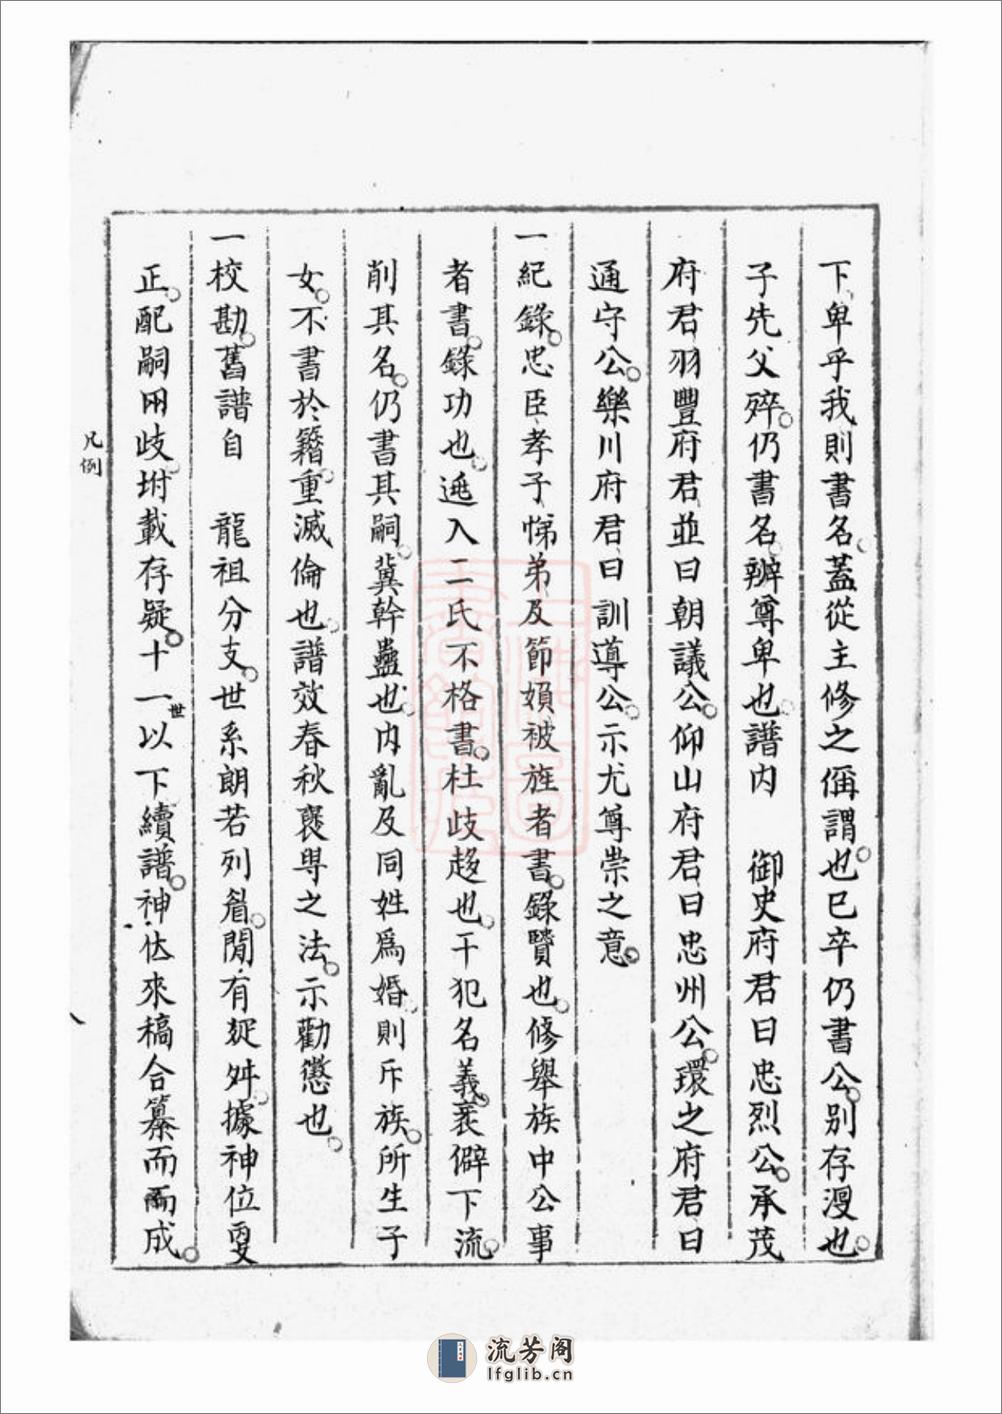 下卑乎我則書名蓋從主修之偁謂也已卒仍書公別存歿也
子先父殀仍書名辨尊卑也譜內　御史府君曰忠烈公承茂
府君羽豐府君並曰朝議公仰山府君曰忠州公環之府君曰
通守公樂川府君曰訓導公示尤尊崇之意
一紀錄忠臣孝子悌弟及節嬪被旌者書錄賢也修舉族中公事
者書錄功也遁入二氏不格書杜歧趍也干犯名義衺僻下流
削其名仍書其嗣冀幹蠱也內亂及同姓為婚則斥族所生子
女不書於籍重滅倫也譜效春秋襃㝵之法示勸懲也
一校勘舊譜自　龍祖分支世系朗若列眉閒有舛據神位
正配嗣兩歧坿載存疑十一世以下續譜神佸來稿合纂而成
凡例
流芳阁
lfglib.cn